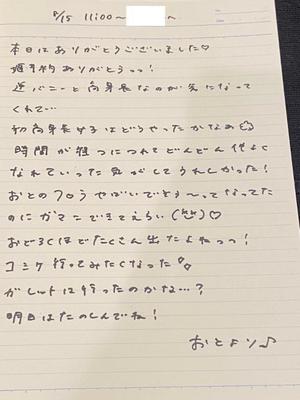 8/15 11:00〜 へ
本日はありがとうございました♡
週予約ありがとうっっ!
逆バニーと高身長なのが気になって
くれて…
初高身長女子はどうやったかなぁ
時間が経つにつれてどんどん仲よく
なれていった気がしてうれしかった!
おとのフロうやばいでそう〜ってなってた
のにガマンできてえらい ♡
おどろくほどたくさん出たよねっっ!
コミケ行ってみたくなった
ガレットは行ったのかな…?
明日はたのしんでね!
おとより♪